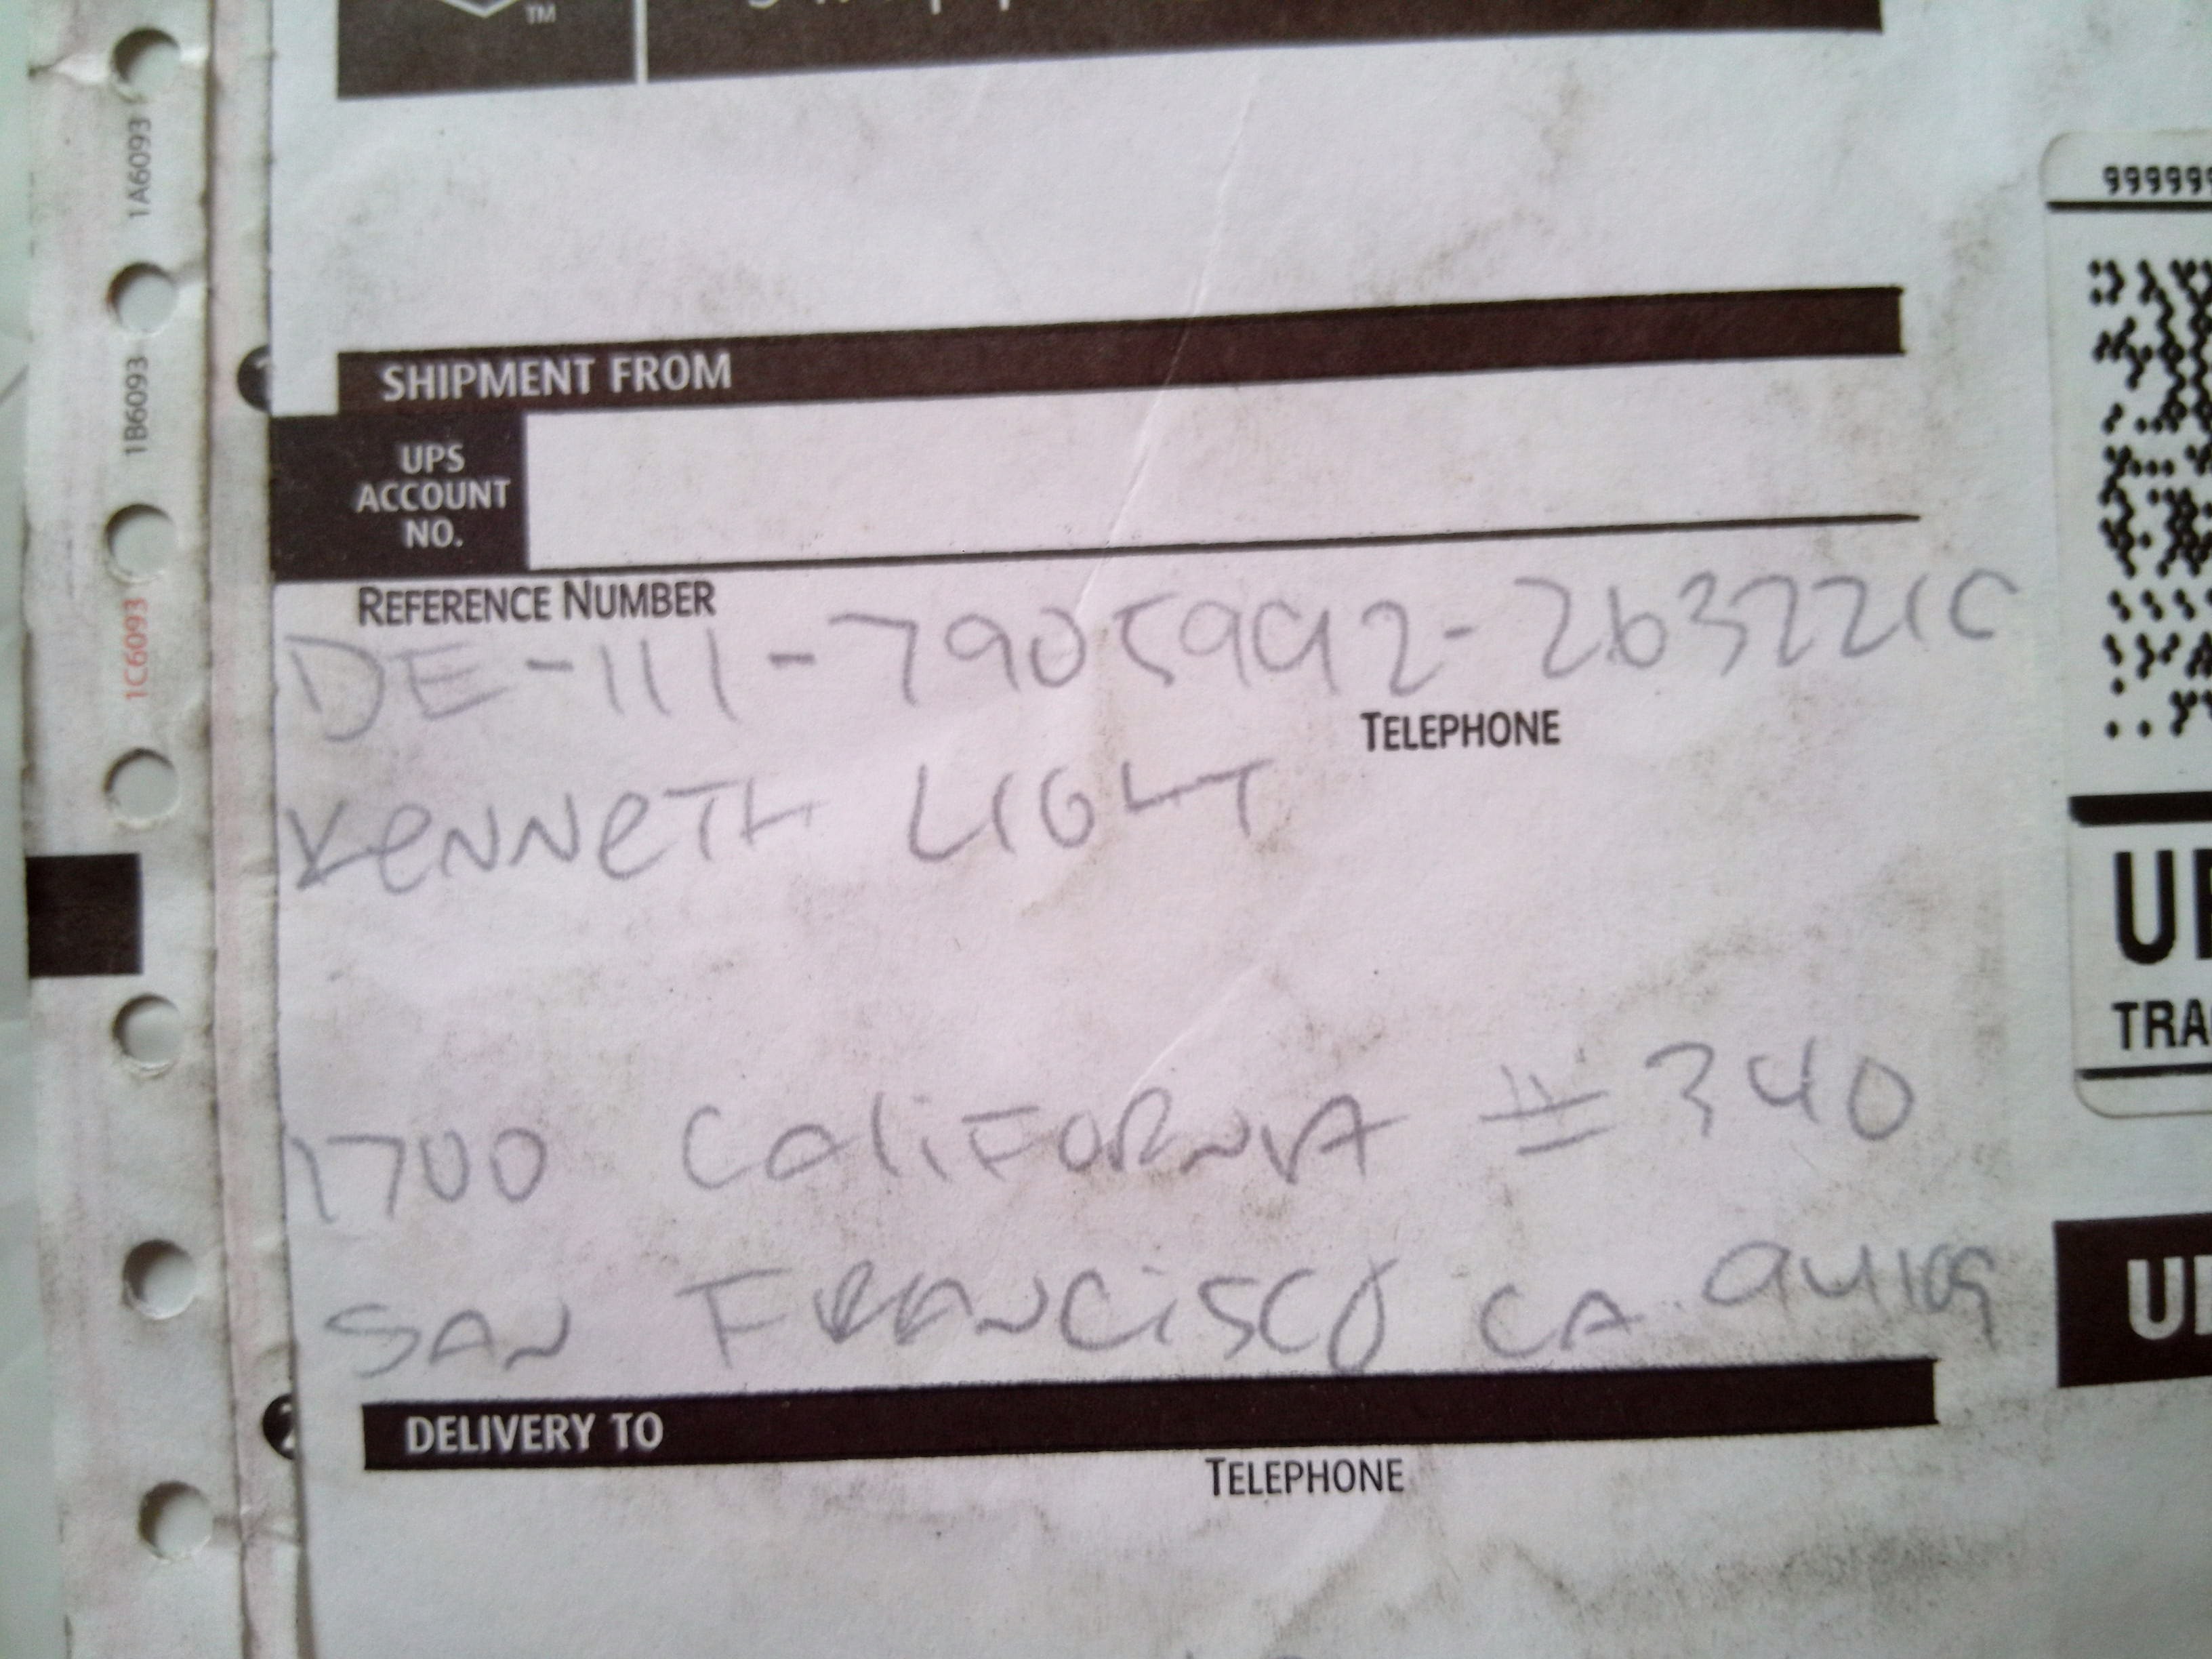 TM
SHIPMENT FROM
UPS
ACCOUNT
NO.
REFERENCE NUMBER
DE-111-7905992-263221C
TELEPHONE
KeNNeTH LIGHT
1700 CaliFORNIA #340
SAN FRANCiSCO CA 94109
DELIVERY TO
TELEPHONE
1A6093
1B6093
1C6093
999999
TRA